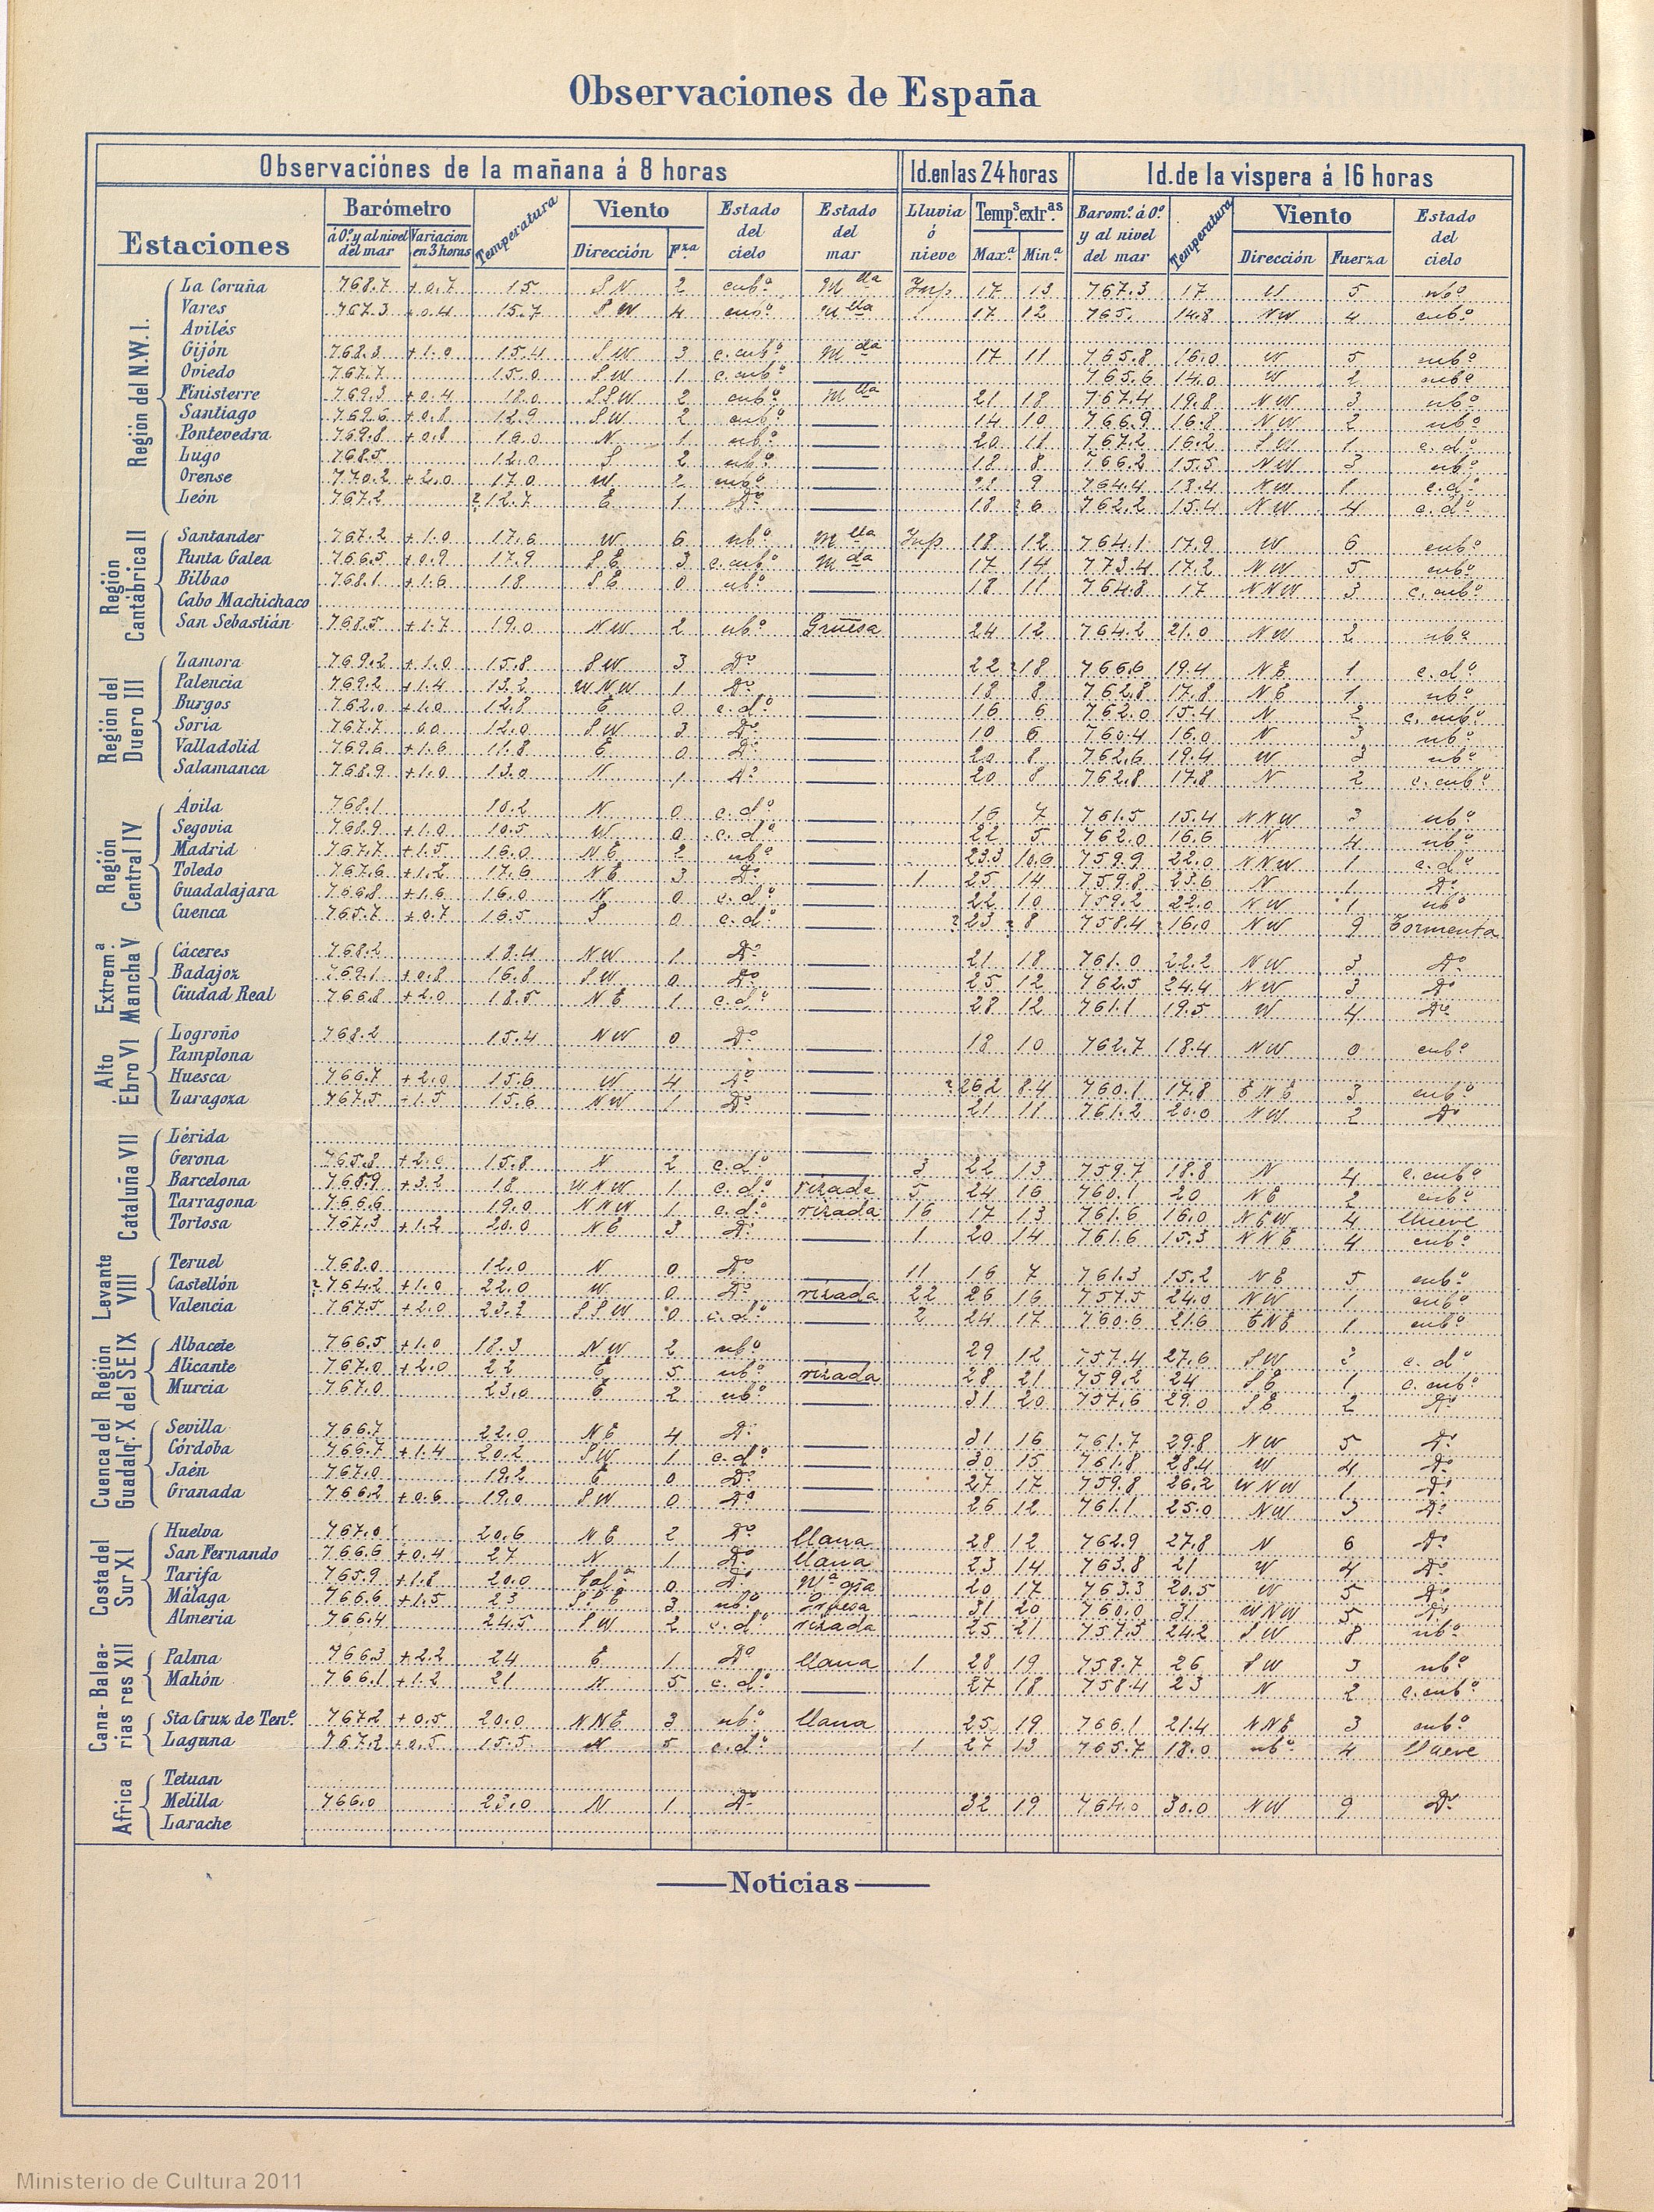 Observaciones de España
Observaciónes de la mañana á 8 horas Id. en las 24 horas Id. de la vispera á 16 horas
Estaciones Barómetro á 0º y al nivel del mar Variacion en 3 horas Temperatura Viento Dirección F.za Estado del cielo Estado del mar Lluvia ó nieve Temp.s extr.as Max.a Min.a Barom.o á 0º y al nivel del mar Temperatura Viento Dirección Fuerza Estado del cielo
Región del N.W. I.
La Coruña 768.7 +0.7 15 2 cubº Mlla Inp 17 13 767.3 17 5 nbº
Vares 767.3 +0.4 15.7 SW 4 cubº Mlla 17 12 765. 14.8 NW 4 cubº
Avilés
Gijón 768.3 +1.0 15.4 SW 3 c.cubº Mda 17 11 765.8 16.0 W 5 cubº
Oviedo 767.7 15.0 SW 1 c.cubº 765.6 14.0 W 2 cubº
Finisterre 769.3 +0.4 18.0 SSW 2 cubº Mlla 21 18 767.4 19.8 NW 3 nbº
Santiago 769.6 +0.8 12.9 SW 2 cubº 14 10 766.9 16.8 NW 2 nbº
Pontevedra 769.8 +0.8 16.0 N 1 nbº 20 11 767.2 16.2 SW 1 c.dº
Lugo 768.5 12.0 S 2 nbº 18 8 766.2 15.5 NW 3 nbº
Orense 770.2 +2.0 17.0 W 2 9 764.4 13.4 NW 1 c.dº
León 767.2 ?12.7 E 1 Dº 18 ?6 762.2 15.4 NW 4 c.dº
Región Cantábrica II
Santander 767.2 +1.0 17.6 W 6 nbº Mlla Inp 18 12 764.1 17.9 W 6 cubº
Punta Galea 766.5 +0.9 17.9 SE 3 c.cubº Mda 17 14 773.4 17.2 NW 5 cubº
Bilbao 768.1 +1.6 18 SE 0 nbº 18 11 764.8 17 NNW 3 c.cubº
Cabo Machichaco
San Sebastián 768.5 +1.7 19.0 NW 2 nbº Gruesa 24 12 764.2 21.0 NW 2 nbº
Región del Duero III
Zamora 769.2 +1.0 15.8 SW 3 Dº 22 ?18 766.6 19.4 NE 1 c.dº
Palencia 769.2 +1.4 13.2 WNW 1 Dº 18 8 762.8 17.8 NE 1 nbº
Burgos 762.0 +1.0 12.8 E 0 c.dº 16 6 762.0 15.4 N 2 c.cubº
Soria 767.7 0.0 12.0 SW 3 Dº 10 6 760.4 16.0 N 3 nbº
Valladolid 769.6 +1.6 11.8 E 0 Dº 20 8 762.6 19.4 W 3 nbº
Salamanca 768.9 +1.0 13.0 N 1 Dº 20 8 762.8 17.8 N 2 c.cubº
Región Central IV
Ávila 768.1 10.2 N 0 c.dº 16 7 761.5 15.4 NNW 3 nbº
Segovia 768.9 +1.0 10.5 W 0 c.dº 22 5 762.0 16.6 N 4 nbº
Madrid 767.7 +1.5 16.0 NE 2 nbº 23.3 10.6 759.9 22.0 NNW 1 c.dº
Toledo 767.6 +1.2 17.6 NE 3 Dº 1 25 14 759.8 23.6 N 1 Dº
Guadalajara 766.8 +1.6 16.0 N 0 c.dº 22 10 759.2 22.0 NW 1 nbº
Cuenca 765.7 +0.7 16.5 S 0 c.dº ?23 ?8 758.4 ?16.0 NW 9 Tormenta
Extrem.a Mancha V
Cáceres 768.2 18.4 NW 1 Dº 21 18 761.0 22.2 NW 3 Dº
Badajoz 769.1 +0.8 16.8 SW 0 Dº 25 12 762.5 24.4 NW 3 Dº
Ciudad Real 766.8 +2.0 18.5 NE 1 c.dº 28 12 761.1 19.5 W 4 Dº
Alto Ebro VI
Logroño 768.2 15.4 NW 0 Dº 18 10 762.7 18.4 NW 0 cubº
Pamplona
Huesca 766.7 +2.0 15.6 W 4 Dº ?26.2 8.4 760.1 17.8 ENE 3 cubº
Zaragoza 767.5 +1.5 15.6 NW 1 Dº 21 11 761.2 20.0 NW 2 Dº
Cataluña VII
Lérida
Gerona 765.8 +2.0 15.8 N 2 c.dº 3 22 13 759.7 18.8 N 4 c.cubº
Barcelona 768.9 +3.2 18 WNW 1 c.dº rizada 5 24 16 760.1 20 NE 2 cubº
Tarragona 766.6 19.0 NNW 1 c.dº rizada 16 17 13 761.6 16.0 NEW 4 llueve
Tortosa 767.3 +1.2 20.0 NE 3 Dº 1 20 14 761.6 15.3 NNE 4 cubº
Levante VIII
Teruel 768.0 12.0 N 0 Dº 11 16 7 761.3 15.2 NE 5 cubº
Castellón ?764.2 +1.0 22.0 W 0 Dº rizada 22 26 16 757.5 24.0 NW 1 cubº
Valencia 767.5 +2.0 23.2 SSW 0 c.dº 2 24 17 760.6 21.6 ENE 1 cubº
Región del SE IX
Albacete 766.5 +1.0 18.3 NW 2 nbº 29 12 757.4 27.6 SW 3 c.dº
Alicante 767.0 +2.0 22 E 5 nbº rizada 28 21 759.2 24 SE 1 c.cubº
Murcia 767.0 23.0 E 2 nbº 31 20 757.6 29.0 SE 2 Dº
Cuenca del Guadalq.r X
Sevilla 766.7 22.0 NE 4 Dº 31 16 761.7 29.8 NW 5 Dº
Córdoba 766.7 +1.4 20.2 SW 1 c.dº 30 15 761.8 28.4 W 4 Dº
Jaén 767.0 19.2 E 0 Dº 27 17 759.8 26.2 WNW 1 Dº
Granada 766.2 +0.6 19.0 SW 0 Dº 26 12 761.1 25.0 NW 3 Dº
Costa del Sur XI
Huelva 767.0 20.6 NE 2 Dº llana 28 12 762.9 27.8 N 6 Dº
San Fernando 766.6 +0.4 27 N 1 Dº llana 23 14 763.8 21 W 4 Dº
Tarifa 765.9 +1.8 20.0 Calª 0 Dº 20 17 763.3 20.5 W 5 Dº
Málaga 766.6 +1.5 23 3 nbº 31 20 760.0 31 WNW 5 Dº
Almeria 766.4 24.5 SW 2 c.dº rizada 25 21 757.5 24.2 SW 8 nbº
Cana- Balea- rias res XII
Palma 766.3 +2.2 24 E 1 Dº llana 1 28 19 758.7 26 SW 3 nbº
Mahón 766.1 +1.2 21 N 5 c.dº 27 18 758.4 23 N 2 c.cubº
Sta Cruz de Ten.e 767.2 +0.5 20.0 NNE 3 nbº llana 25 19 766.1 21.4 NNE 3 cubº
Laguna 767.2 +0.5 15.5 N 5 c.dº 1 27 13 765.7 18.0 nbº 4 llueve
Africa
Tetuan
Melilla 766.0 23.0 N 1 Dº 32 19 764.0 30.0 NW 9 Dº
Larache
Noticias
Ministerio de Cultura 2011